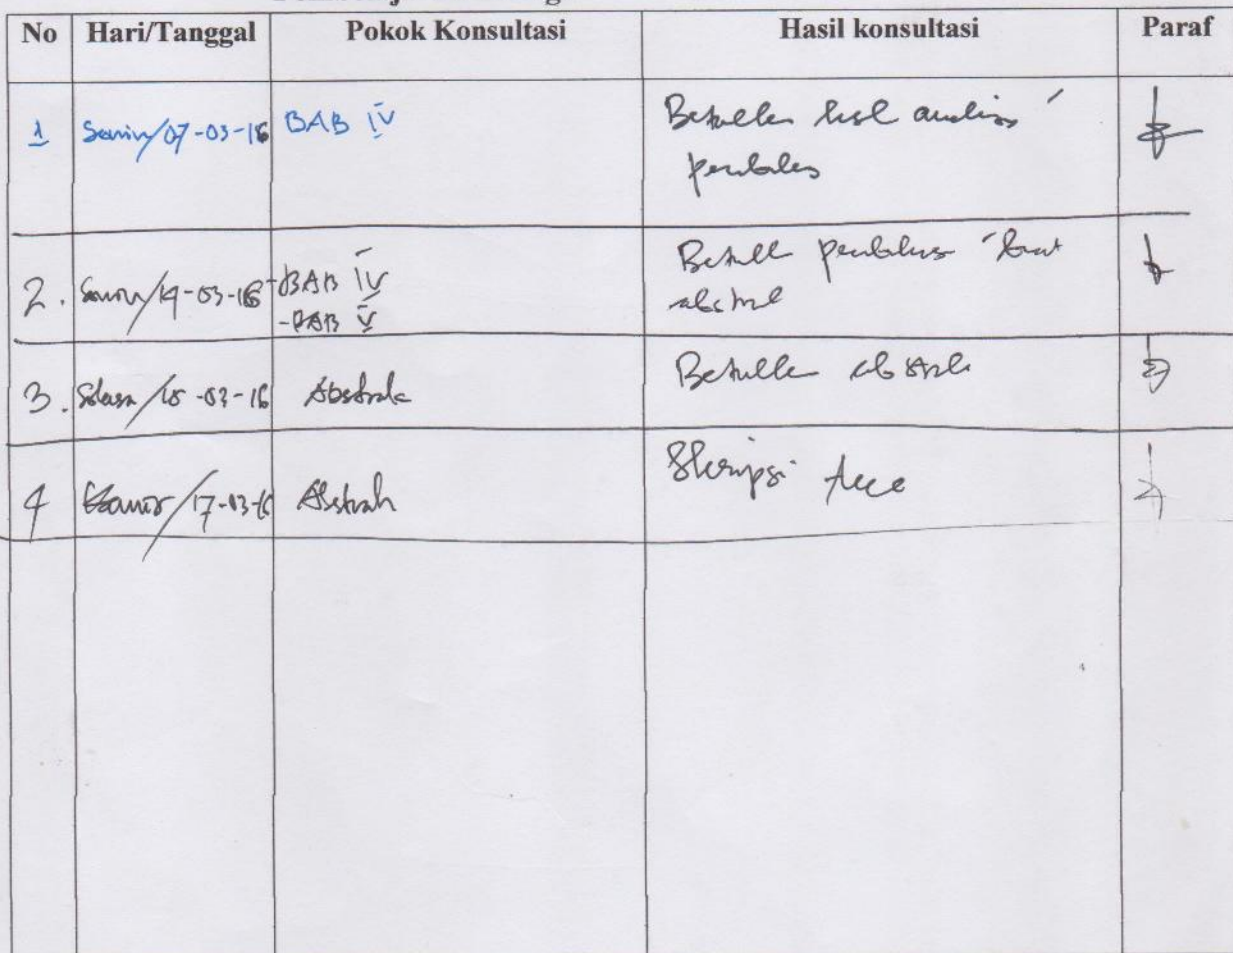 No Hari/Tanggal Pokok Konsultasi Hasil konsultasi Paraf
1 Senin/07-03-16 BAB IV Betulkan hsl analisis
2. Senin/14-03-16 -BAB IV Betulk
-BAB V abstrak
3. Selasa/15-03-16 Abstrak Betulkan abstrak
4 Kamis/17-03-16 Abstrak Skripsi Acc